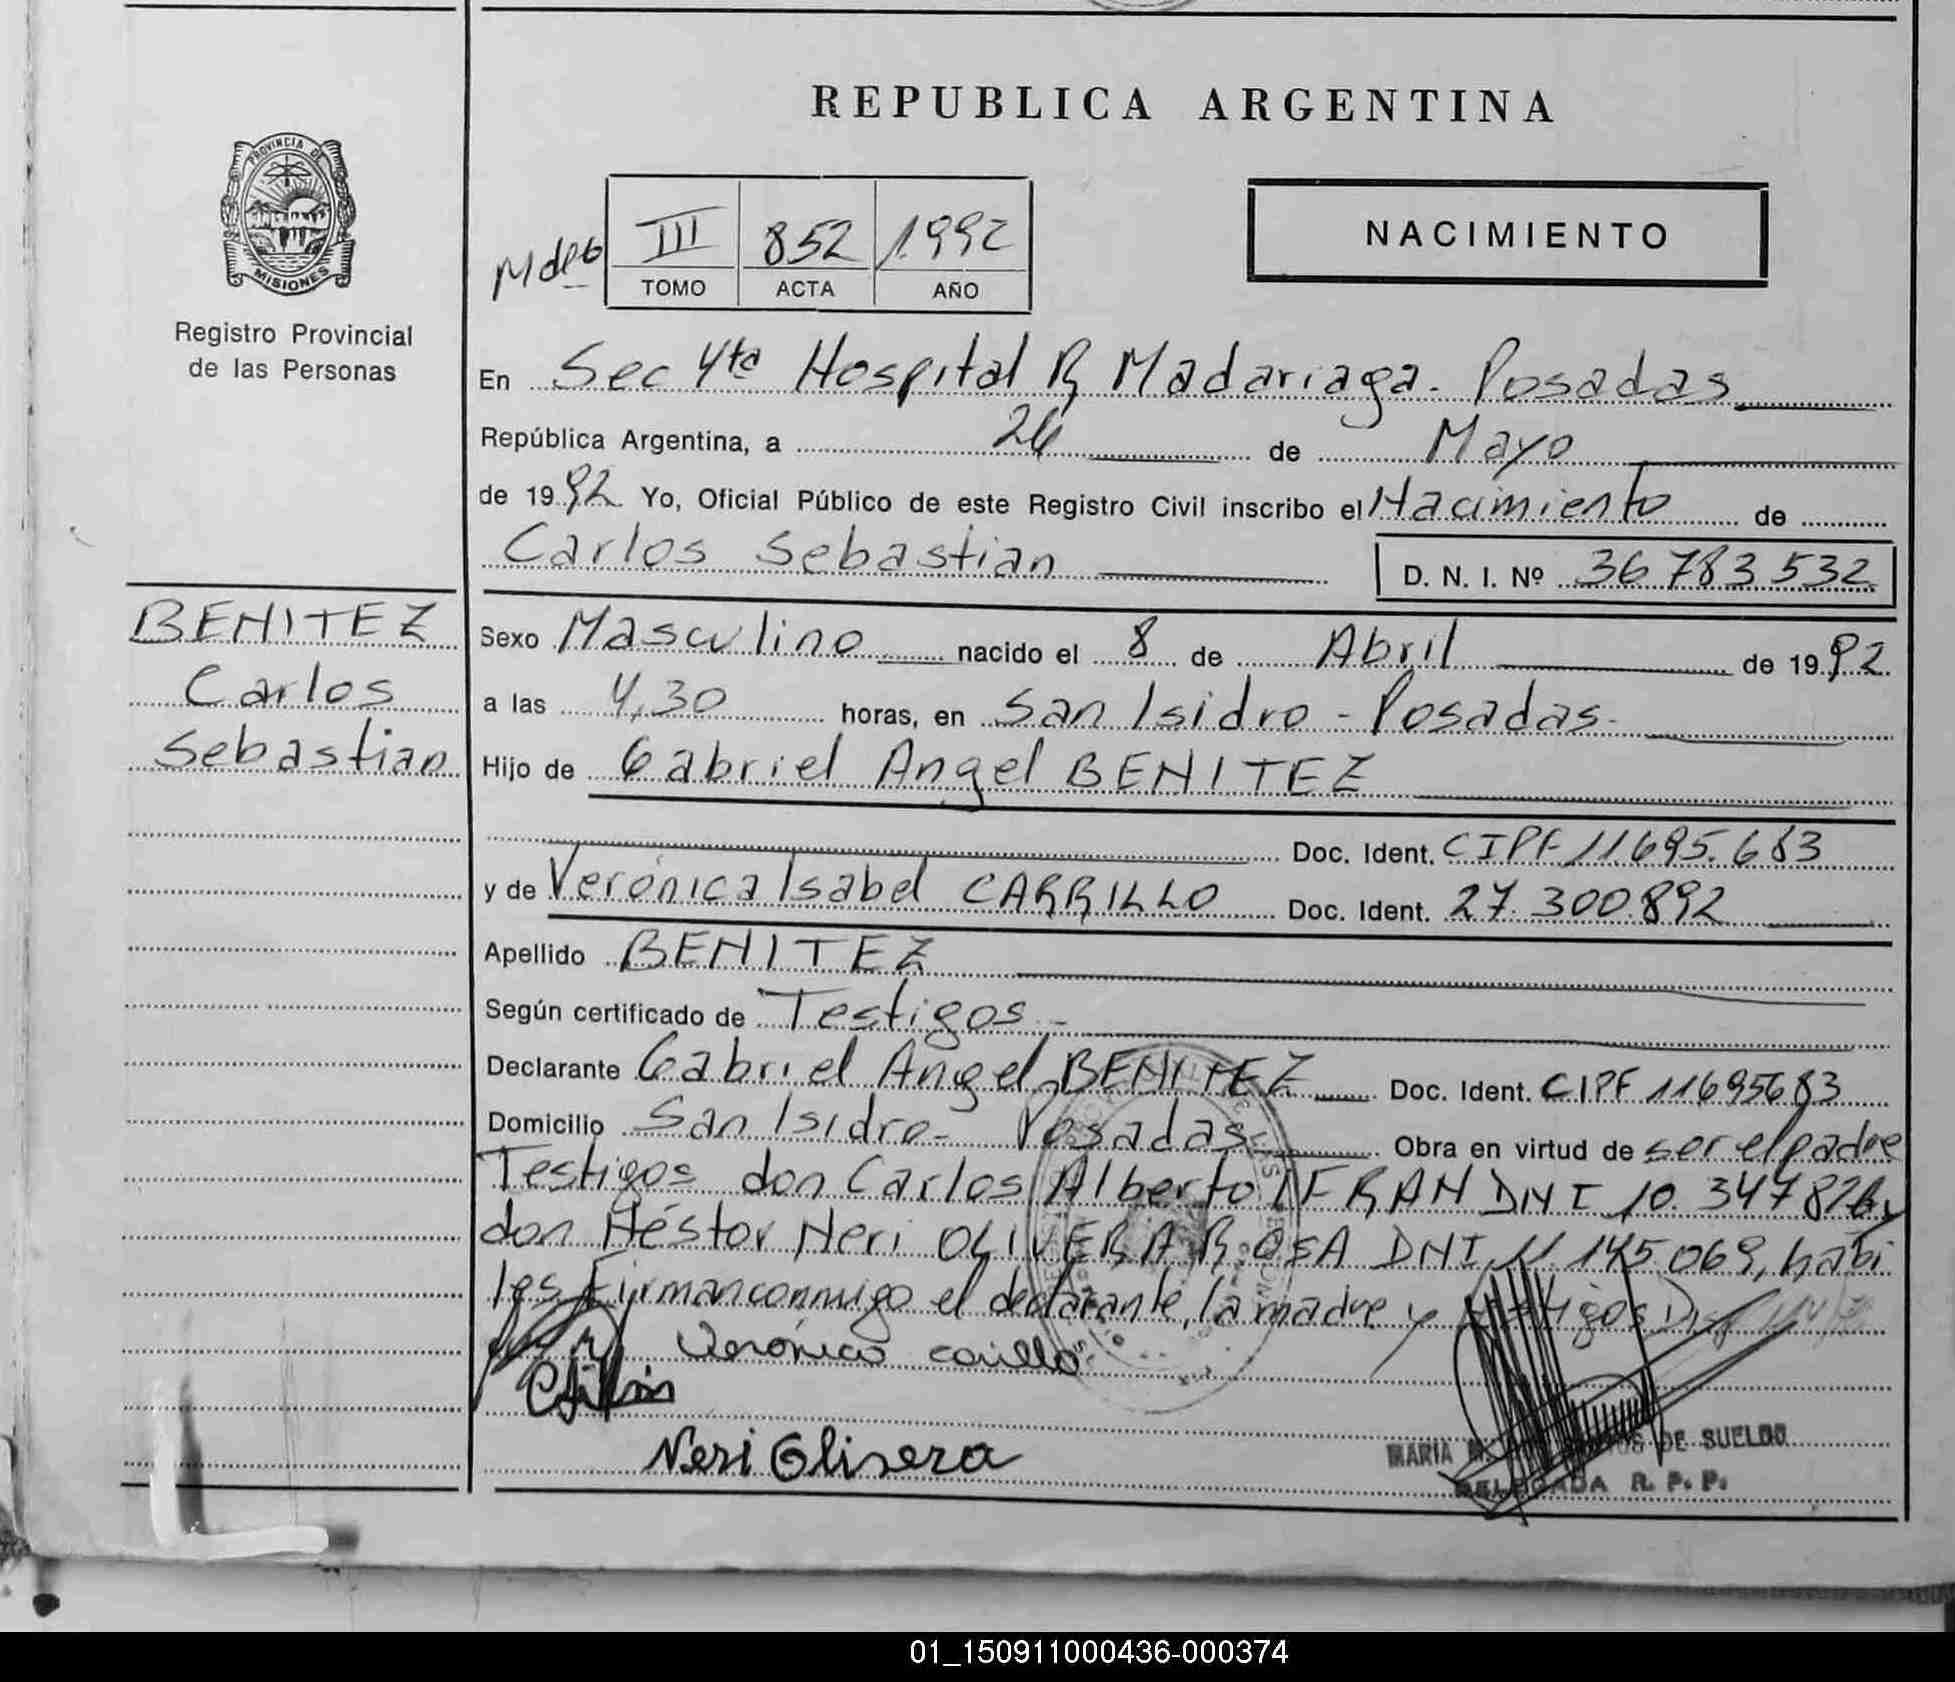 REPUBLICA ARGENTINA
PROVINCIA DE
MISIONES
Registro Provincial
de las Personas
III 852 1992
TOMO ACTA AÑO
NACIMIENTO
En Sec 4ta Hospital R Madariaga - Posadas
República Argentina, a 26 de Mayo
de 1992 Yo, Oficial Público de este Registro Civil inscribo el Nacimiento de
Carlos Sebastian D. N. I. Nº 36 783 532
BENITEZ
Carlos
Sebastian
Sexo Masculino nacido el 8 de Abril de 1992
a las 4,30 horas, en San Isidro - Posadas-
Hijo de Gabriel Angel BENITEZ
Doc. Ident. CIPF 11.695.683
y de Verónica Isabel CARRILLO Doc. Ident. 27.300.892
Apellido BENITEZ
Según certificado de Testigos -
Declarante Gabriel Angel BENITEZ Doc. Ident. CIPF 11695683
Domicilio San Isidro - Posadas Obra en virtud de ser el padre
Testigos don Carlos Alberto DNI 10.347826 y
don Héstor Neri OLIVERA ROSA DNI 11.145.069, habi
les Firman conmigo el declarante, la madre y testigos
Verónica Carillo
Neri Olivera
MARIA DE SUELDO
DELEGADA R. P. P.
01_150911000436-000374